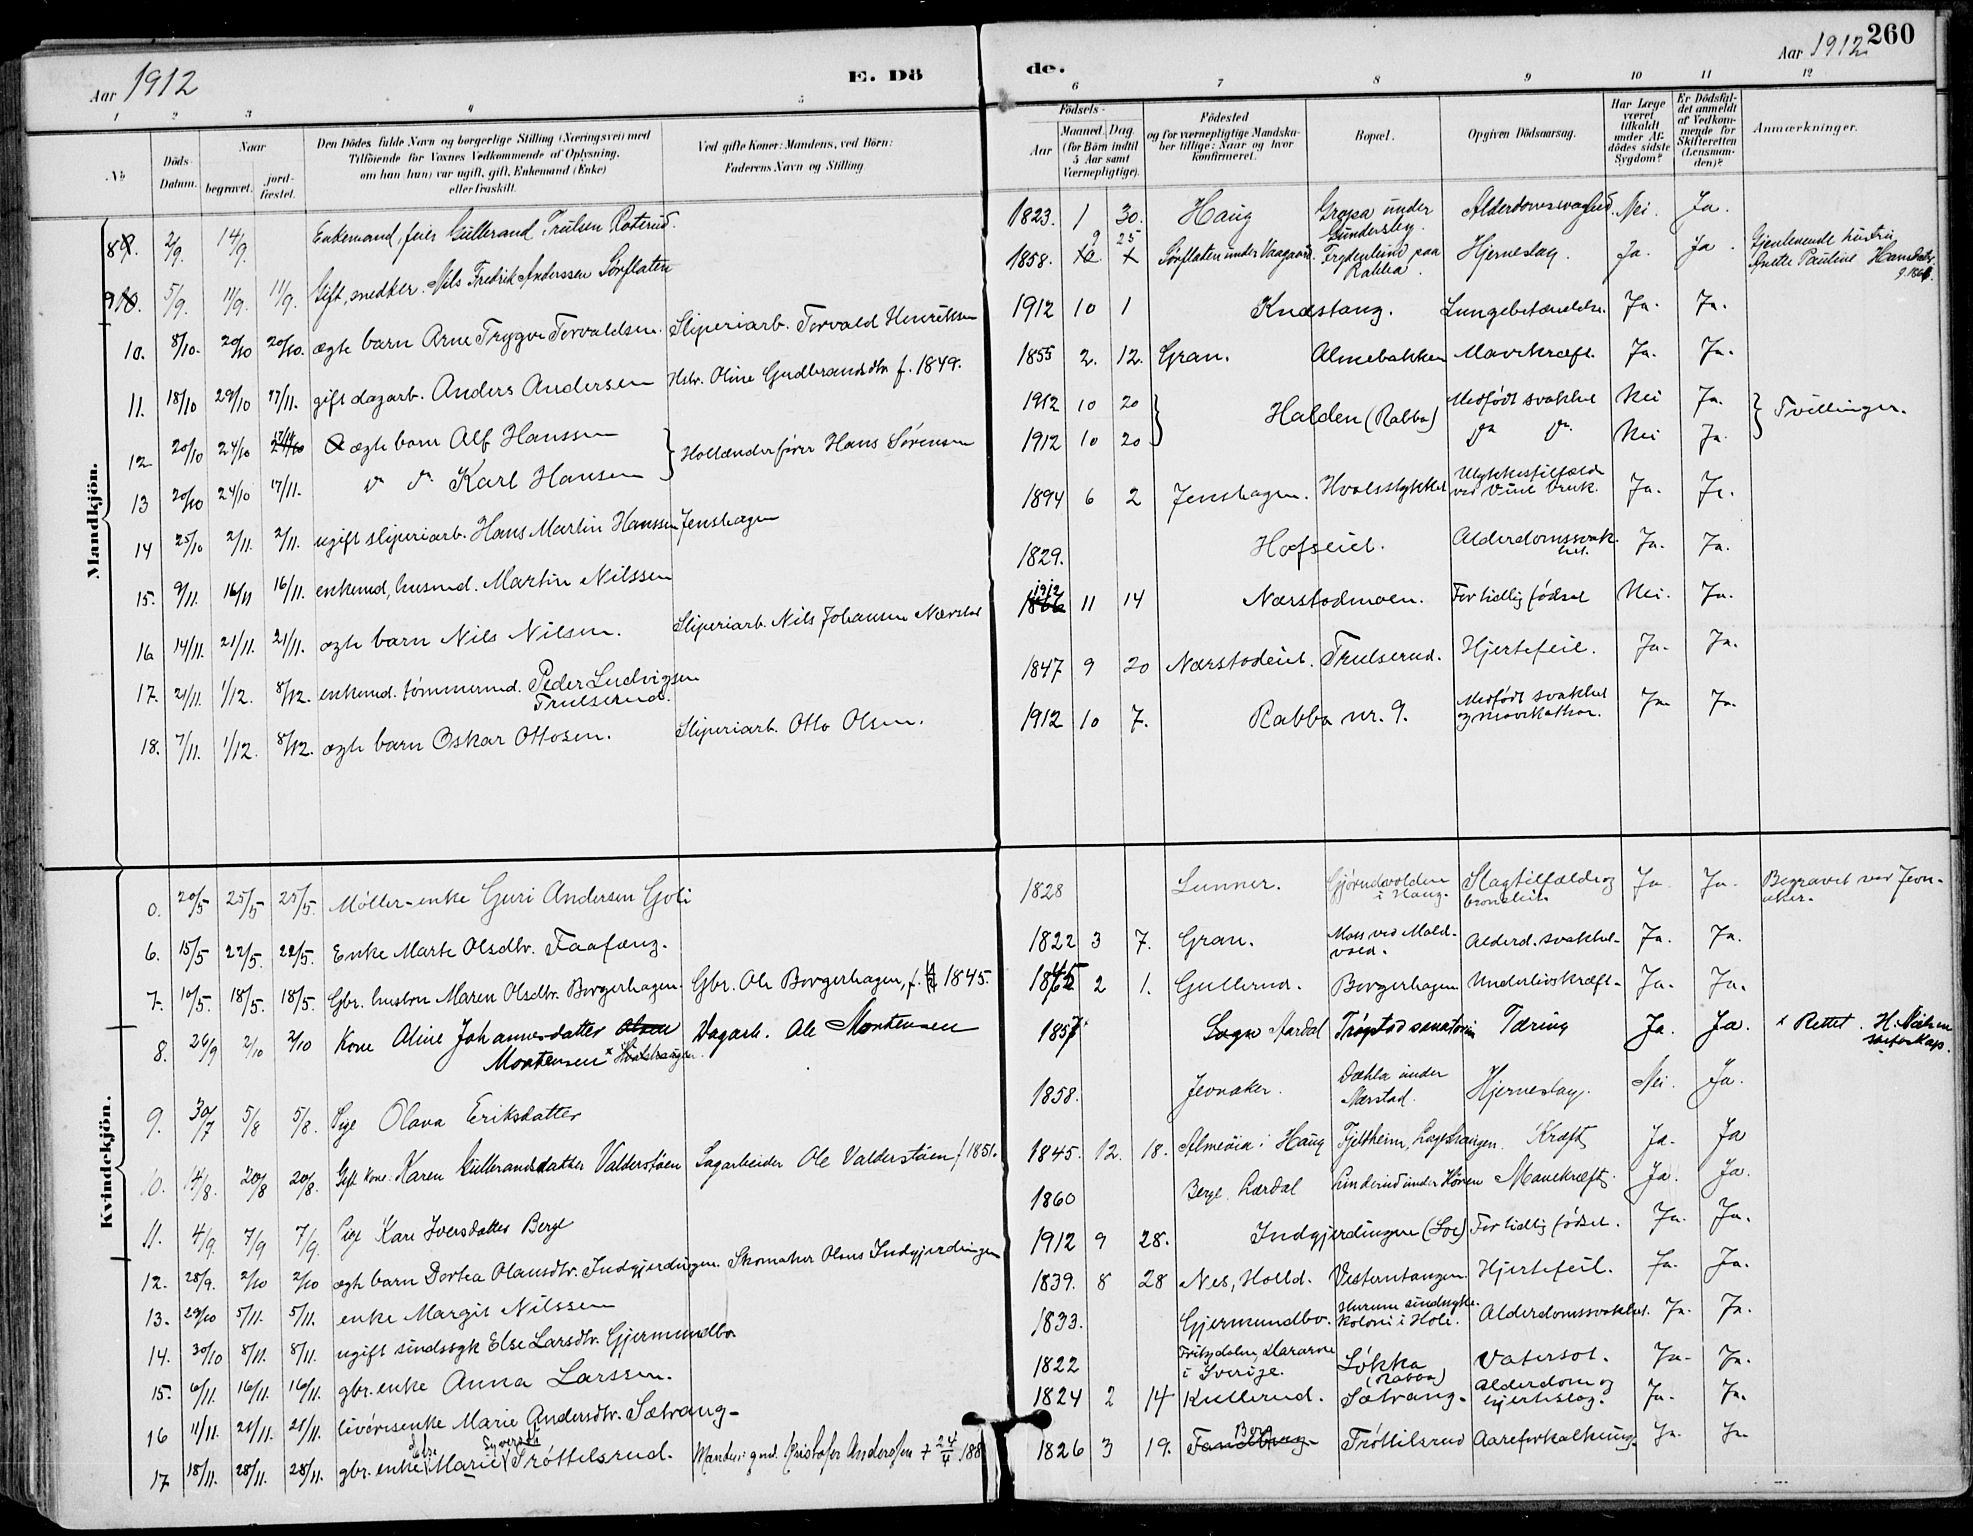 Aar 1912
E. Dö
de.
Aar 1912
260
1 2 3 4 5 6 7 8 9 10 11 12
No
Döds-Datum.
Naar
begravet.
jord-fæstet.
Den Dödes fulde Navn og borgerlige Stilling (Næringsvei) med
Tilföiende for Voxnes Vedkommende af Oplysning,
om han (hun) var ugift, gift, Enkemand (Enke)
eller fraskilt.
Ved gifte Koner: Mandens, ved Börn:
Faderens Navn og Stilling
Födsels-
Aar
Maaned. Dag
(for Börn indtil
5 Aar samt
Værnepligtige).
Födested
og for værnepligtige Mandska-
ber tillige: Naar og hvor
konfirmeret.
Bopæl.
Opgiven Dödsaarsag.
Har Læge
været
tilkaldt
under Af-
dödes sidste
Sygdom?
Er Dödsfal-
det anmeldt
af Vedkom-
mende for
Skifteretten
(Lensman-
den)?
Anmærkninger.
Mandkjön.
8 2/9. 14/9. Enkemand, feier Gullerand Trulsen Roterud. 1823. 1 30. Haug Gropa under Gundersby. Alderdomssvaghed. Nei. Ja.
9 5/9. 11/9. 11/9. Gift, snedker. Nils Fredrik Anderssen Sørflaten 1858. 9 25 Sørflaten under Vaagaard. Frydenlund paa Rabba. Hjerneslag. Ja. Ja. Gjenlevende hustru Anette Pauline Hansdatr.
10. 8/10. 20/10 20/10. ægte barn Arne Trygve Torvaldsen. Sliperiarb. Torvald Henriksen 1912 10 1 Knæstang. Lungebetændelse. Ja. Ja.
11. 18/10 29/10 17/11. gift dagarb. Anders Andersen Hstr. Oline Gudbrandsdtr f. 1849. 1855 2. 12. Gran. Almebakken Mavekræft. Ja. Ja.
12 20/10 24/10 17/11 ægte barn Alf Hanssen Hollænderfører Hans Sørensen 1912 10 20 Halden (Rabba) Medfødt svakhet Nei Ja. Tvillinger.
13 20/10 24/10 17/11. do do Karl Hansen 1912 10 20 do do. Nei Ja.
14 25/10 2/11. 2/11. ugift sliperiarb. Hans Martin Hanssen Jenshagen 1894 6 2 Jenshagen. Hvalsstykket Ulykkestilfælde ved Viul bruk. Ja. Ja.
15. 9/11. 16/11 16/11. enkemd, husmd. Martin Nilssen 1829. Hofseiet. Alderdomssvakhet. Ja. Ja.
16 14/11. 21/11. 21/11. ægte barn Nils Nilsen. Sliperiarb. Nils Johansen Nærstad 1912 11 14 Nærstadmoen. For tidlig fødsel Nei. Ja.
17. 21/11. 1/12. 8/12. enkemd. tømmermd. Peder Ludvigsen Trulserud. 1847 9 20 Nærstadeiet. Trulserud. Hjertefeil. Ja. Ja.
18. 7/11. 1/12. 8/12. ægte barn Oskar Ottosen. Sliperiarb. Otto Olsen. 1912 10 7. Rabba nr. 9. Medfødt svakhet og mavekatar. Ja. Ja.
Kvindekjön.
0. 20/5 25/5 25/5. Møller-enke Guri Andersen Goli 1828 Lunner. Gjørudvolden i Haug. Slagtilfælde og bronkit. Ja. Ja. Begravet ved Jevnaker.
6. 15/5 22/5. 22/5. Enke Marte Olsdtr. Faafæng. 1822 3 7. Gran. Moss ved Moldvald. Alderd. svakhet. Ja. Ja.
7. 10/5. 18/5. 18/5. Gbr. hustru Maren Olsdtr. Borgerhagen. Gbr. Ole Borgerhagen, f. 1845. 1845 2 1. Gullerud. Borgerhagen Underlivskræft. Ja. Ja.
8. 26/9 2/10 2/10 Kone Aline Johannesdatter Olsen Mortensen x Dagarb. Ole Mortensen 1857 Sogn Aardal Trøgstad sanatorium Tæring Ja. Ja. x Rettet. H. Nielsen
9. 30/7 5/8 5/8. Pige Olava Eriksdatter 1858. Jevnaker. Dæhla under Nærstad. Hjerneslag. Nei. Ja.
10. 14/8. 20/8 20/8. Gift kone. Karen Gullerandsdatter Valderstøen Sagarbeider Ole Valderstøen f 1851. 1845. 12. 18. Almeøia i Haug Fjeltheim, Lageshaugen. Kræft Ja. Ja
11. 4/9. 7/9 7/9. Pige Kari Iversdatter Berge 1860 Berge, Lærdal Linderud under Hønen Mavekræft. Ja. Ja.
12. 28/9. 2/10 2/10 ægte barn Dortea Olausdtr. Indgjerdingen. Skomaker Olaus Indgjerdingen 1912 9 28. Indgjerdingen (Soe) For tidlig fødsel. Ja. Ja.
13. 29/10 5/11. 5/11. enke Margit Nilssen 1839. 8 28 Nes, Holld. Vesterntangen Hjertefeil. Ja. Ja.
14. 30/10 8/11. 8/11. ugift sindssyk Else Larsdtr. Gjermundbo 1833. Gjermundbo. Hurum sindssyke-koloni i Hole. Alderdomssvakhet. Ja. Ja.
15. 6/11. 16/11. 16/11. gbr. enke Anna Larssen. 1822 Fritzdalen, Dalarne i Sverige. Løkka (Rabba) Vatersot. Ja. Ja.
16 11/11. 21/11. 21/11. livørisenke Marie Andersdtr. Sætrang. 1824 2 14 Kullerud. Sætrang. Alderdom og hjerteslag. Ja. Ja.
17 18/11. 28/11. 28/11. gbr. enke Else Marie Syversdtr Trøttelsrud. Manden: gmd. Kristofer Andersen + 24/4 188 1826 3 19. Trøttilsrud Aareforkalkning. Ja. Ja.